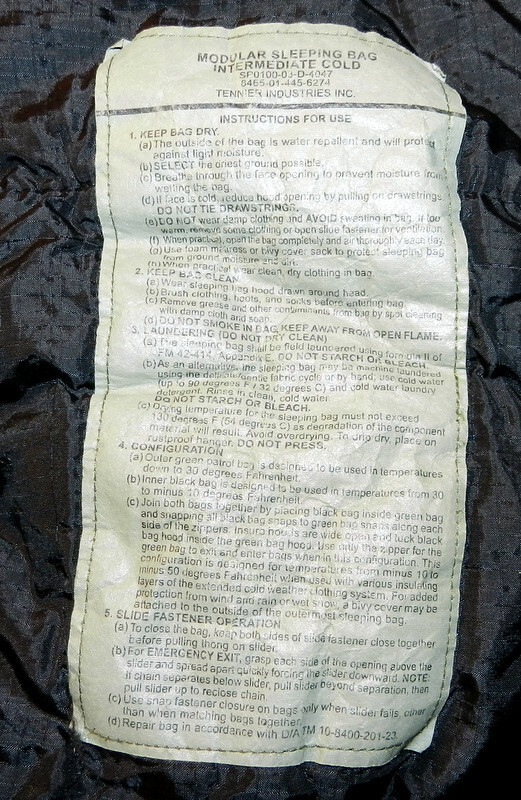 MODULAR SLEEPING BAG
INTERMEDIATE COLD
SP0100-03-D-4047
8465-01-445-6274
TENNIER INDUSTRIES INC.
INSTRUCTIONS FOR USE
1. KEEP BAG DRY.
(a) The outside of the bag is water repellent and will protect
against light moisture.
(b) SELECT the driest ground possible.
(c) Breathe through the face opening to prevent moisture from
wetting the bag.
(d) If face is cold, reduce hood opening by pulling on drawstrings.
DO NOT TIE DRAWSTRINGS.
(e) DO NOT wear damp clothing and AVOID sweating in bag. If too
warm, remove some clothing or open slide fastener for ventilation.
(f) When practical, open the bag completely and air thoroughly each day.
(g) Use foam mattress or bivy cover sack to protect sleeping bag
from ground moisture and dirt.
(h) When practical wear clean, dry clothing in bag.
2. KEEP BAG CLEAN.
(a) Wear sleeping bag hood drawn around head.
(b) Brush clothing, boots, and socks before entering bag.
(c) Remove grease and other contaminants from bag by spot cleaning
with damp cloth and soap.
(d) DO NOT SMOKE IN BAG, KEEP AWAY FROM OPEN FLAME.
3. LAUNDERING (DO NOT DRY CLEAN)
(a) The sleeping bag shall be field laundered using formula II of
FM 42-414, Appendix E. DO NOT STARCH OR BLEACH.
(b) As an alternative, the sleeping bag may be machine laundered
using the delicate/gentle fabric cycle or by hand; use cold water
(up to 90 degrees F / 32 degrees C) and cold water laundry
detergent. Rinse in clean, cold water.
DO NOT STARCH OR BLEACH.
(c) Drying temperature for the sleeping bag must not exceed
130 degrees F (54 degrees C) as degradation of the component
material will result. Avoid overdrying. To drip dry, place on
rustproof hanger. DO NOT PRESS.
4. CONFIGURATION
(a) Outer green patrol bag is designed to be used in temperatures
down to 30 degrees Fahrenheit.
(b) Inner black bag is designed to be used in temperatures from 30
to minus 10 degrees Fahrenheit.
(c) Join both bags together by placing black bag inside green bag
and snapping all black bag snaps to green bag snaps along each
side of the zippers. Insure hoods are wide open and tuck black
bag hood inside the green bag hood. Use only the zipper for the
green bag to exit and enter bags when in this configuration. This
configuration is designed for temperatures from minus 10 to
minus 50 degrees Fahrenheit when used with various insulating
layers of the extended cold weather clothing system. For added
protection from wind and rain or wet snow, a bivy cover may be
attached to the outside of the outermost sleeping bag.
5. SLIDE FASTENER OPERATION
(a) To close the bag, keep both sides of slide fastener close together
before pulling thong on slider.
(b) For EMERGENCY EXIT, grasp each side of the opening above the
slider and spread apart quickly forcing the slider downward. NOTE:
If chain separates below slider, pull slider beyond separation, then
pull slider up to reclose chain.
(c) Use snap fastener closure on bags only when slider fails, other
than when matching bags together.
(d) Repair bag in accordance with D/A TM 10-8400-201-23.